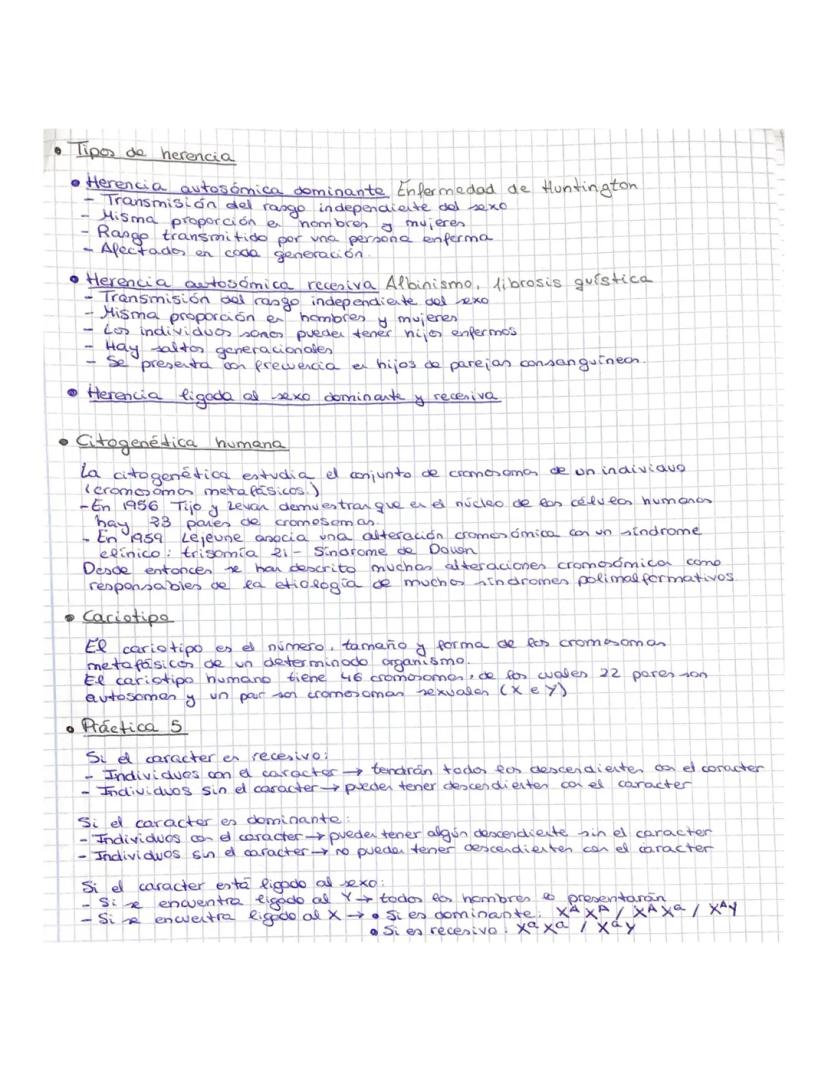 • Tipos de herencia
• Herencia autosómica dominante Enfermedad de Huntington
- Transmisión del rasgo independiente del sexo
- Misma proporción en hombres y mujeres
- Rasgo transmitido por una persona enferma
- Afectados en cada generación.
• Herencia autosómica recesiva Albinismo, fibrosis quística
- Transmisión del rasgo independiente del sexo
- Misma proporción en hombres y mujeres
- Los individuos sanos pueden tener hijos enfermos
- Hay saltos generacionales
- Se presenta con frecuencia en hijos de parejas consanguíneas.
• Herencia ligada al sexo dominante y recesiva
• Citogenética humana
La citogenética estudia el conjunto de cromosomas de un individuo
(cromosomas metafásicos.)
- En 1956 Tijo y Levan demuestran que en el núcleo de las células humanas
hay 23 pares de cromosomas.
- En 1959 Lejeune asocia una alteración cromosómica con un síndrome
clínico: trisomía 21 - Síndrome de Down
Desde entonces se han descrito muchas alteraciones cromosómicas como
responsables de la etiología de muchos síndromes polimalformativos
• Cariotipo
El cariotipo es el número, tamaño y forma de los cromosomas
metafásicos de un determinado organismo.
El cariotipo humano tiene 46 cromosomas, de los cuales 22 pares son
autosomas y un par son cromosomas sexuales (X e Y)
• Práctica 5
Si el caracter es recesivo:
- Individuos con el caracter → tendrán todos los descendientes con el caracter
- Individuos sin el caracter → pueden tener descendientes con el caracter
Si el caracter es dominante:
- Individuos con el caracter → pueden tener algún descendiente sin el caracter
- Individuos sin el caracter → no pueden tener descendientes con el caracter
Si el caracter está ligado al sexo:
- Si se encuentra ligado al Y → todos los hombres lo presentarán
- Si se encuentra ligado al X → • Si es dominante: XᴬXᴬ / XᴬXᵃ / XᴬY
• Si es recesivo: XᵃXᵃ / XᵃY